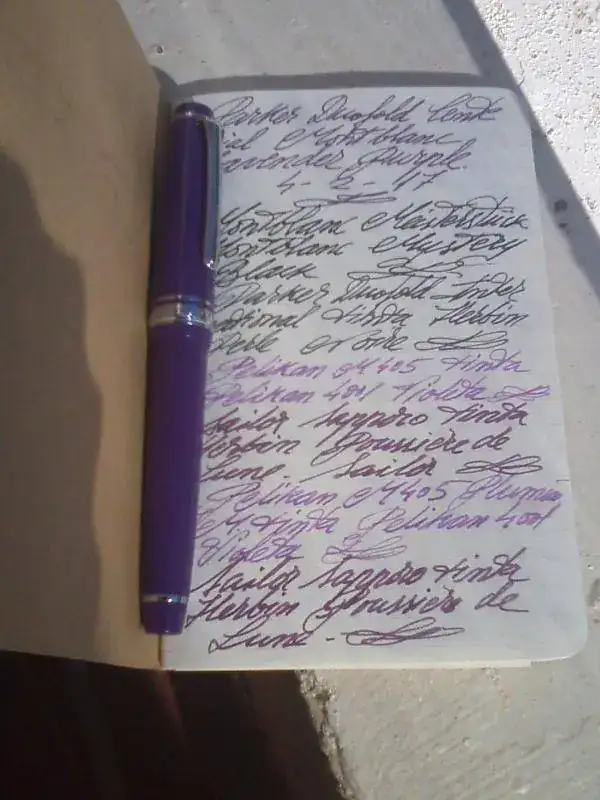 Parker Duofold Cente
ial Montblanc
avender Purple.
4-2-17
Montblanc Meisterstück
Montblanc Mystery
Black
Parker Duofold Inter
national tinta Herbin
Perle
Pelikan M405 tinta
Pelikan 4001 Violeta
Sailor Sapporo tinta
Herbin Poussière de
Lune. Sailor
Pelikan M405 Pluma
M tinta Pelikan 4001
Violeta
Sailor Sapporo tinta
Herbin Poussière de
Lune.-